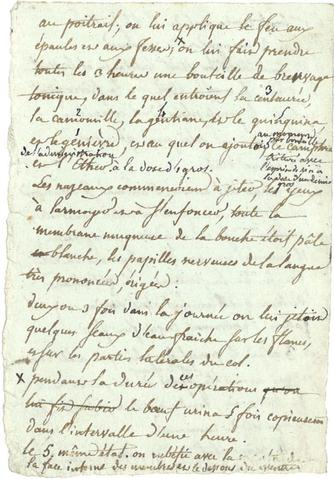 au poitrail; on lui applique le feu aux
épaules et aux fesses; on lui fait prendre
toutes les 3 heures une bouteille de breuvage
tonique, dans le quel entroient la centaurée,
la camomille, la gentiane, et le quinquina
et le génièvre, et au quel on ajoutoit le camphre
au moment
de l'administration
et l'Ether à la dose d'1 gros.
Les nazeaux commencèrent à jeter, les yeux
à larmoyer et à s'enfoncer, toute la
membrane muqueuse de la bouche étoit pâle
blanche, les papilles nerveuses de la langue
très prononcées, érigées.
deux ou 3 fois dans la journée on lui jetoit
quelques seaux d'eau fraîche sur les flancs,
et sur les parties latérales du col.
x pendant la durée de ces opérations
le bœuf urina 5 fois copieusement
dans l'intervalle d'une heure.
le 5, même état. on
la face interne des membres et le dessous du